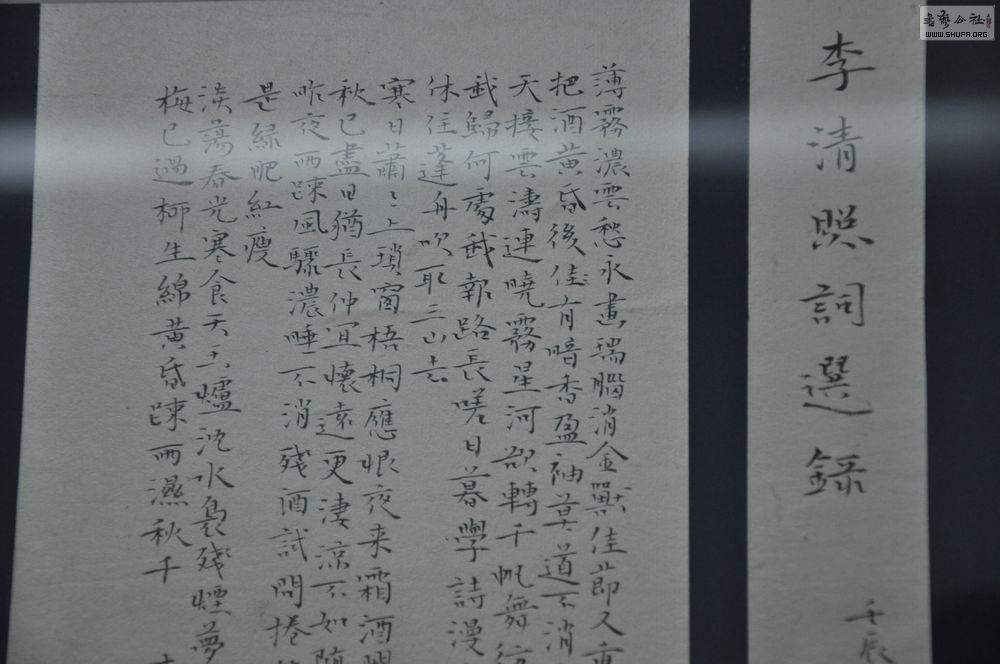 李清照詞選錄
壬辰
薄霧濃雲愁永晝瑞腦消金獸佳節又重
把酒黃昏後佳有暗香盈袖莫道不消
天接雲濤連曉霧星河欲轉千帆舞
我歸何處我報路長嗟日暮學詩漫
休住蓬舟吹取三山去
寒日蕭〻上瑣窗梧桐應恨夜来霜酒闌
秋已盡日猶長仲宣懷遠更淒涼不如隨
昨夜雨踈風驟濃睡不消殘酒試問捲
是綠肥紅瘦
淡蕩春光寒食天玉爐沉水裊殘煙夢
梅已過柳生綿黃昏踈雨濕秋千
書藝公社
WWW.SHUFA.ORG